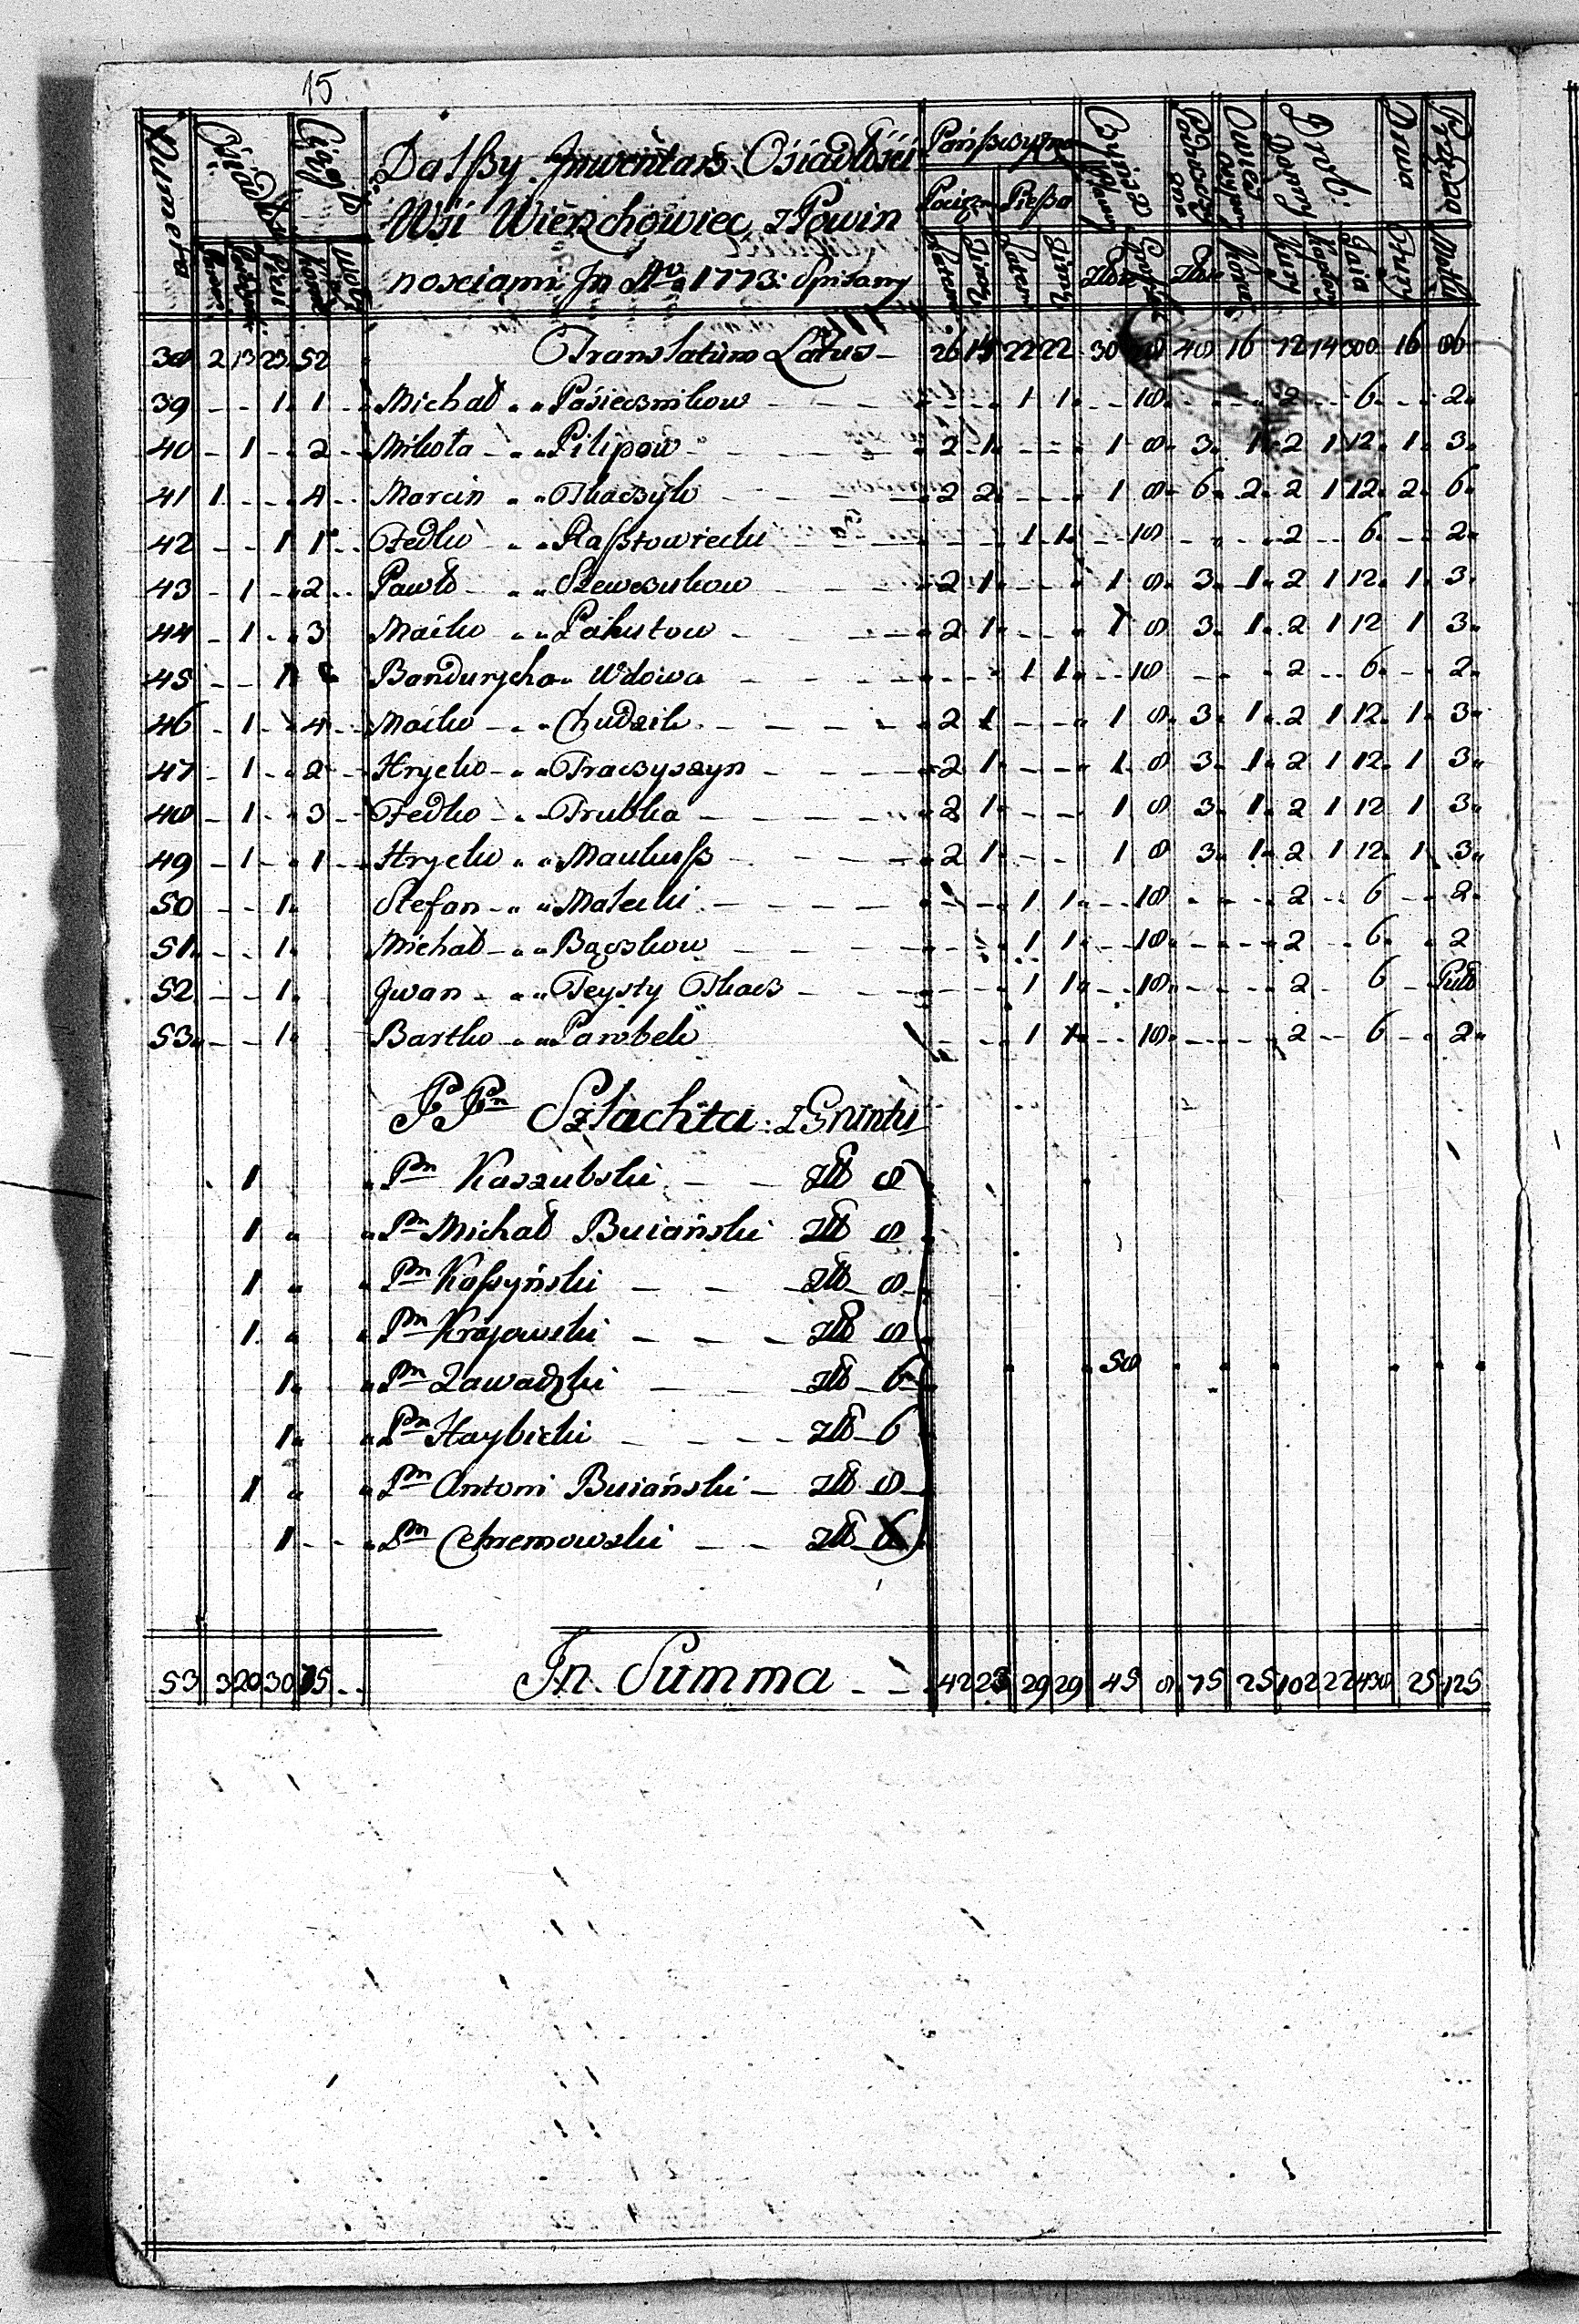 15.
Numera
Osiadłość
Ciągło
Dalſzy Inwentarz Osiadłości
Wsi Wierzchowiec z Powin
nosciami In Aō 1773: Spisany
Pańſzczyzna
Pociągła Pieſza
Latem Zimą Latem Zimą
Czynsz
Złote Grosze
Złote
Owies
Drob:
Kury Kapłony Jaia
Drwa
Fury
Przędza
Motki
38 2 13 23 52 Translatum Latus 26 14 22 22 30 8 48 16 72 14 300 16 86
39 1 1 Michał Pasiecznikow 1 1 18 2 6 2
40 1 2 Mikota Pilipow 2 1 1 8 3 1 2 1 12 1 3
41 1 4 Marcin Tkaczyk 2 2 1 8 6 2 2 1 12 2 6
42 1 1 Fedko Raſztowiecki 1 1 18 2 6 2
43 1 2 Pawło Szewczukow 2 1 1 8 3 1 2 1 12 1 3
44 1 3 Maćko Pakutow 2 1 1 8 3 1 2 1 12 1 3
45 1 Bondurycha Wdowa 1 1 18 2 6 2
46 1 4 Maćko Chudzik 2 1 1 8 3 1 2 1 12 1 3
47 1 2 Hryćko Traczyszyn 2 1 1 8 3 1 2 1 12 1 3
48 1 3 Fedko Trubka 2 1 1 8 3 1 2 1 12 1 3
49 1 1 Hryćko Maukuſz 2 1 1 8 3 1 2 1 12 1 3
50 1 Stefan Malecki 1 1 18 2 6 2
51 1 Michał Bączkow 1 1 18 2 6 2
52 1 Jwan Teysty Tkacz 1 1 18 2 6
53 1 Bartko Parobek 1 1 18 2 6 2
PPn Szlachta z Gruntu
1 Pn Kaszubski złł 8
1 Pn Michał Buiański złł 8
1 Pn Koſzyński złł 8
1 Pn Krajewski złł 8
1 Pn Zawadzki złł 6 58
1 Pn Haybicki złł 6
1 Pn Antoni Buiański złł 8
1 Pn Cehremowski złł 6
53 3 20 30 75 In Summa 42 23 29 29 45 8 75 25 102 22 438 25 125